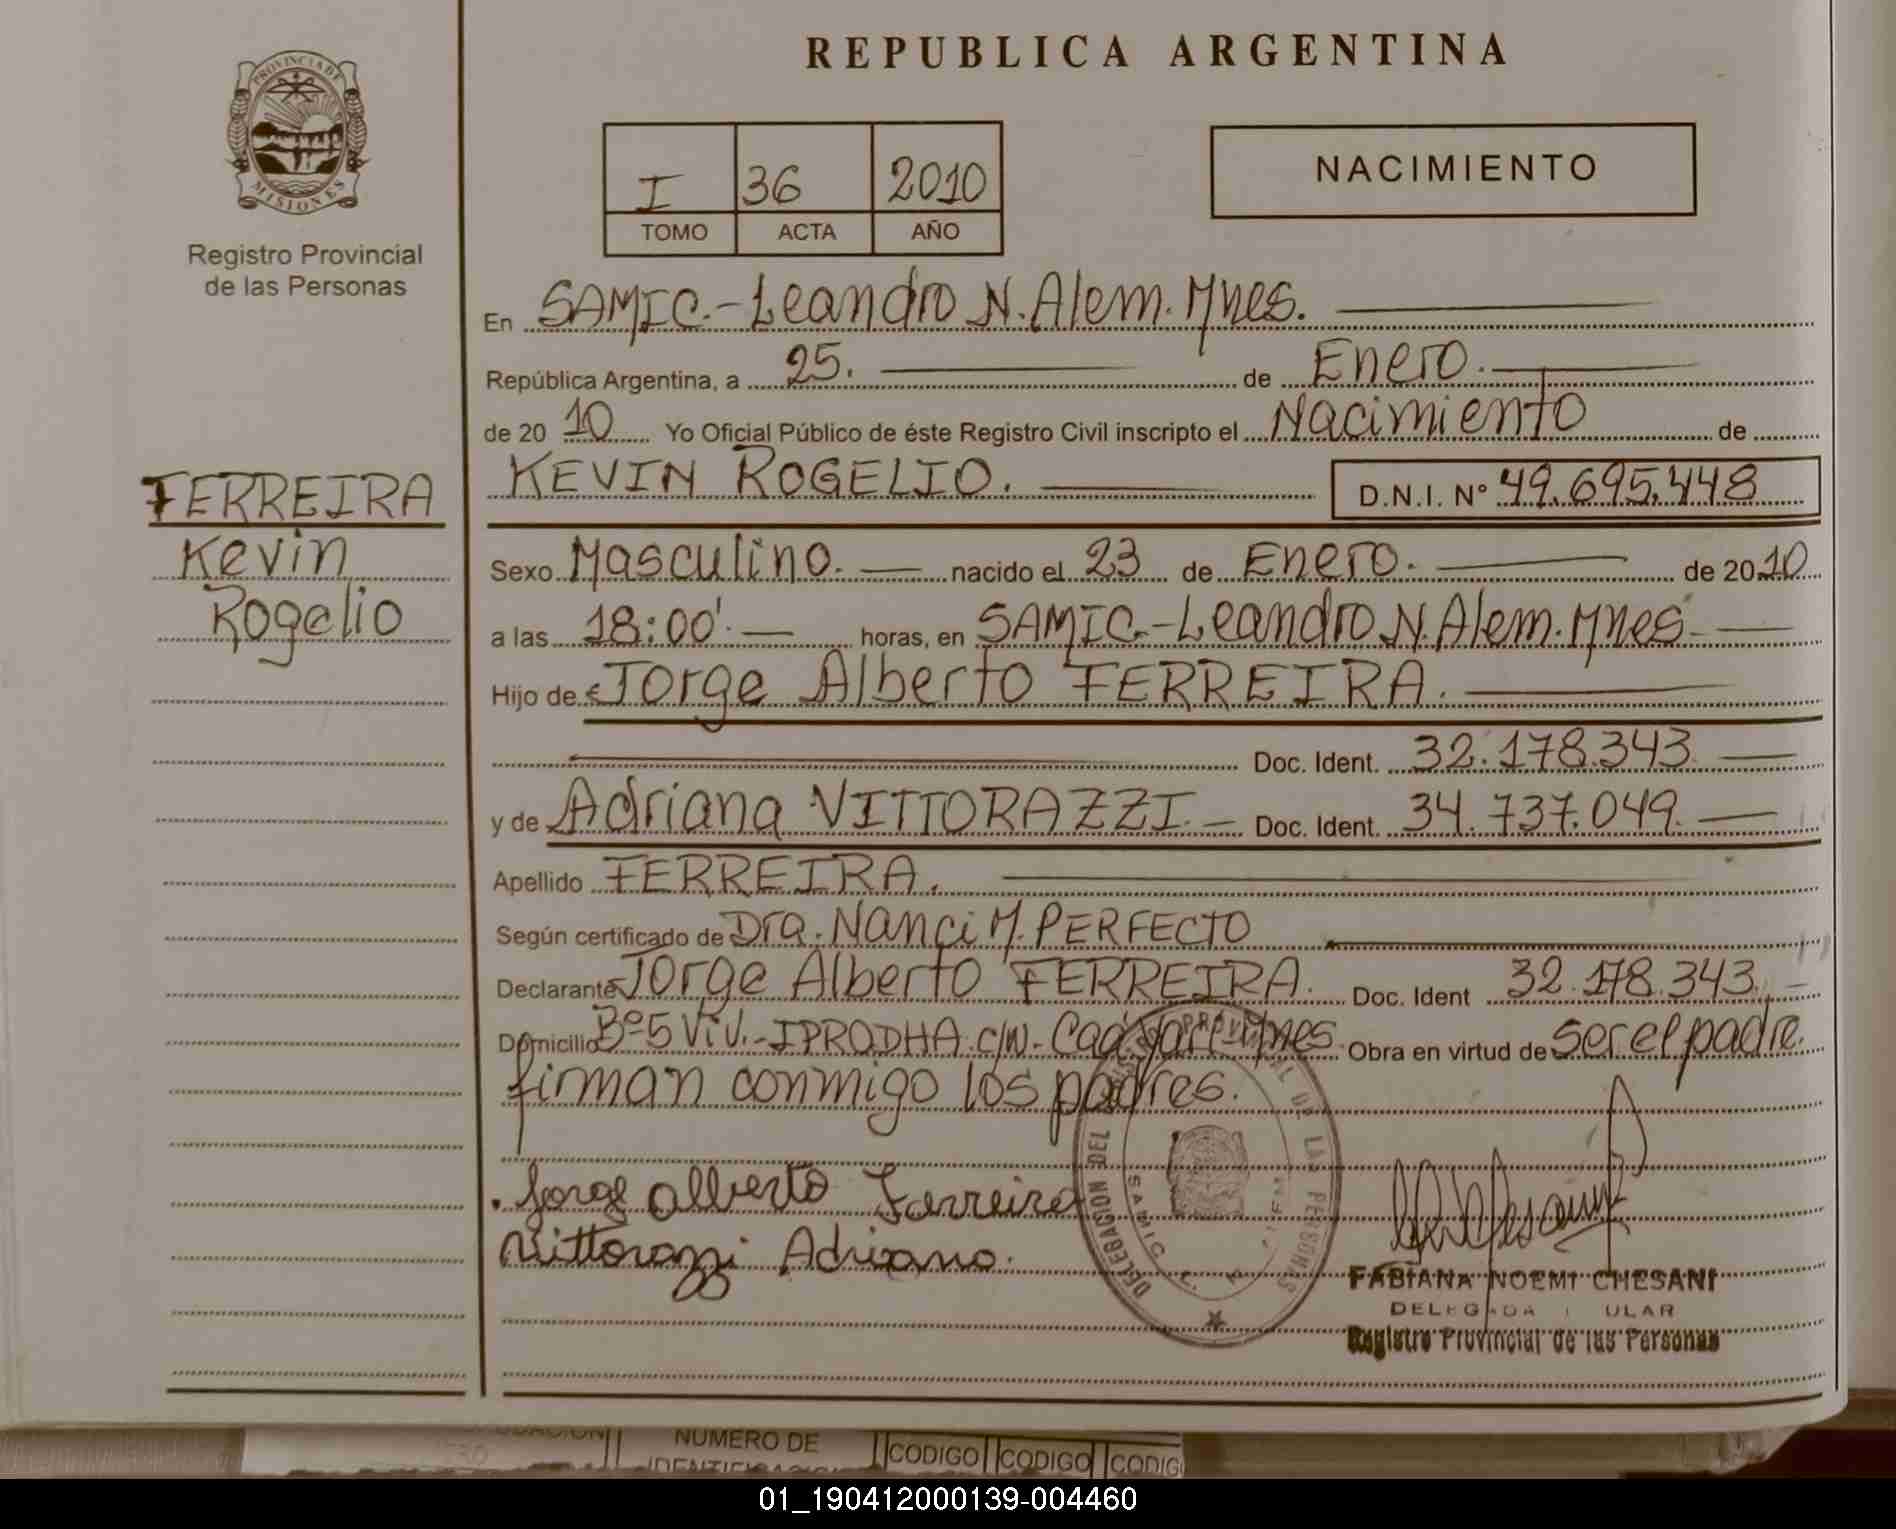 REPUBLICA ARGENTINA
PROVINCIA DE MISIONES
Registro Provincial
de las Personas
I 36 2010
TOMO ACTA AÑO
NACIMIENTO
En SAMIC.-Leandro N. Alem. Mnes.
República Argentina, a 25. de Enero.
de 20 10 Yo Oficial Público de éste Registro Civil inscripto el Nacimiento de
KEVIN ROGELIO. D.N.I. Nº 49.695.448
FERREIRA
Kevin
Rogelio
Sexo Masculino. nacido el 23 de Enero. de 2010
a las 18:00'. horas, en SAMIC.-Leandro N. Alem. Mnes
Hijo de Jorge Alberto FERREIRA.
Doc. Ident. 32.178.343
y de Adriana VITTORAZZI. Doc. Ident. 34.737.049.
Apellido FERREIRA.
Según certificado de Dra. Nanci M. PERFECTO
Declarante Jorge Alberto FERREIRA. Doc. Ident 32.178.343.
Domicilio Bº 5 Viv.-IPRODHA. c/n.- Caá Yarí-Mnes. Obra en virtud de ser el padre.
firman conmigo los padres.
Jorge Alberto Ferreira
Vittorazzi Adriana.
DELEGACION DEL REGISTRO PROVINCIAL DE LAS PERSONAS
SAMIC L. N. ALEM
FABIANA NOEMI CHESANI
DELEGADA TITULAR
Registro Provincial de las Personas
NUMERO DE
CODIGO CODIGO CODIG
01_190412000139-004460